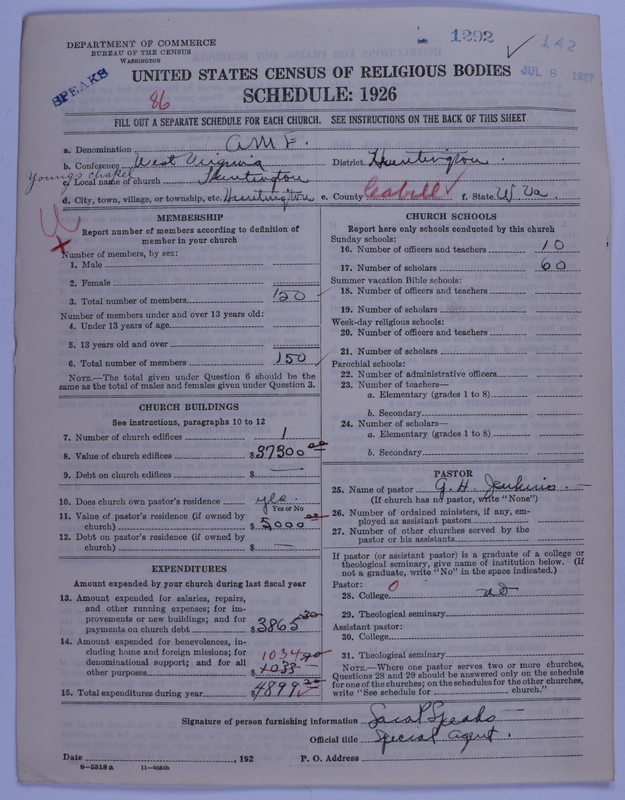 DEPARTMENT OF COMMERCE
BUREAU OF THE CENSUS
WASHINGTON
SPEAKS
1292
142
JUL 8 1927
UNITED STATES CENSUS OF RELIGIOUS BODIES
86
SCHEDULE: 1926
FILL OUT A SEPARATE SCHEDULE FOR EACH CHURCH. SEE INSTRUCTIONS ON THE BACK OF THIS SHEET
a. Denomination A M E.
b. Conference West Virginia District Huntington.
Youngs chapel
c. Local name of church Huntington
d. City, town, village, or township, etc. Huntington e. County Cabell f. State W. Va.
MEMBERSHIP
Report number of members according to definition of
member in your church
Number of members, by sex:
1. Male
2. Female
3. Total number of members 150
Number of members under and over 13 years old:
4. Under 13 years of age
5. 13 years old and over
6. Total number of members 150
NOTE.—The total given under Question 6 should be the
same as the total of males and females given under Question 3.
CHURCH BUILDINGS
See instructions, paragraphs 10 to 12
7. Number of church edifices 1
8. Value of church edifices $37300 00
9. Debt on church edifices $ —
10. Does church own pastor's residence yes.
Yes or No
11. Value of pastor's residence (if owned by
church) $5,000 00
12. Debt on pastor's residence (if owned by
church) $ —
EXPENDITURES
Amount expended by your church during last fiscal year
13. Amount expended for salaries, repairs,
and other running expenses; for im-
provements or new buildings; and for
payments on church debt $3865 30
14. Amount expended for benevolences, in-
cluding home and foreign missions; for
denominational support; and for all
1034
other purposes $1033 —
15. Total expenditures during year $4899
CHURCH SCHOOLS
Report here only schools conducted by this church
Sunday schools:
16. Number of officers and teachers 10
17. Number of scholars 60
Summer vacation Bible schools:
18. Number of officers and teachers
19. Number of scholars
Week-day religious schools:
20. Number of officers and teachers
21. Number of scholars
Parochial schools:
22. Number of administrative officers
23. Number of teachers—
a. Elementary (grades 1 to 8)
b. Secondary
24. Number of scholars—
a. Elementary (grades 1 to 8)
b. Secondary
PASTOR
25. Name of pastor G. H. Jenkins. —
(If church has no pastor, write "None")
26. Number of ordained ministers, if any, em-
ployed as assistant pastors
27. Number of other churches served by the
pastor or his assistants
If pastor (or assistant pastor) is a graduate of a college or
theological seminary, give name of institution below. (If
not a graduate, write "No" in the space indicated.)
Pastor: 0
28. College no
29. Theological seminary
Assistant pastor:
30. College
31. Theological seminary
NOTE.—Where one pastor serves two or more churches,
Questions 28 and 29 should be answered only on the schedule
for one of the churches; on the schedules for the other churches,
write "See schedule for church."
Signature of person furnishing information Sara P Speaks
Official title Special Agent.
Date , 192 P. O. Address
8—5518 a 11—9064b